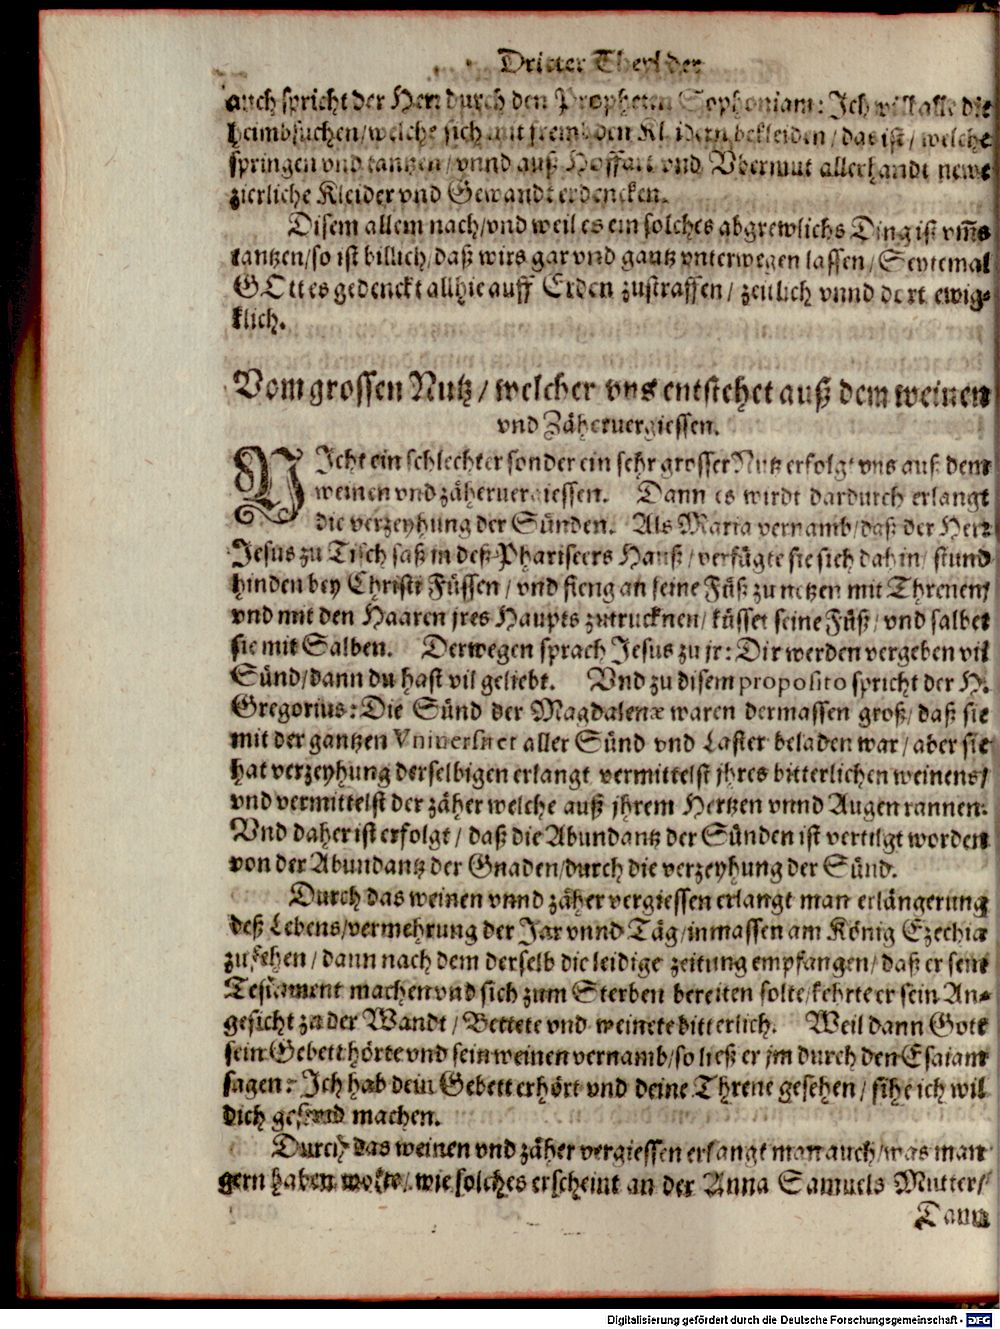 Dritter Theyl der
auch spricht der Herr durch den Propheten Sophoniam: Ich will alle die
heimbsuchen/welche sich mit frembden Kleidern bekleiden/das ist/welche
springen vnd tantzen/vnnd auß Hoffart vnd Vbermut allerhandt newe
zierliche Kleider vnd Gewandt erdencken.
Disem allem nach/vnd weil es ein solches abgrewlichs Ding ist vm̃s
tantzen/so ist billich/daß wirs gar vnd gantz vnterwegen lassen/Seytemal
GOtt es gedenckt allhie auff Erden zustraffen/zeitlich vnnd dort ewig⸗
klich.
Vom grossen Nutz/welcher vns entstehet auß dem weinen
vnd Zähervergiessen.
NIcht ein schlechter sonder ein sehr grosser Nutz erfolgt vns auß dem
weinen vnd zähervergiessen. Dann es wirdt dardurch erlangt
die verzeyhung der Sünden. Als Maria vernamb/daß der Herr
Jesus zu Tisch saß in deß Phariseers Hauß/verfügte sie sich dahin/stund
hinden bey Christi Füssen/vnd fieng an seine Füß zu netzen mit Threnen/
vnd mit den Haaren jres Haupts zutrucknen/küsset seine Füß/vnd salbet
sie mit Salben. Derwegen sprach Jesus zu jr: Dir werden vergeben vil
Sünd/dann du hast vil geliebt. Vnd zu disem proposito spricht der H.
Gregorius: Die Sünd der Magdalenæ waren dermassen groß/daß sie
mit der gantzen Vniversitet aller Sünd vnd Laster beladen war/aber sie
hat verzeyhung derselbigen erlangt vermittelst jhres bitterlichen weinens/
vnd vermittelst der zäher welche auß jhrem Hertzen vnnd Augen rannen.
Vnd daher ist erfolgt/daß die Abundantz der Sünden ist vertilgt worden
von der Abundantz der Gnaden/durch die verzeyhung der Sünd.
Durch das weinen vnnd zäher vergiessen erlangt man erlängerung
deß Lebens/vermehrung der Jar vnnd Täg/inmassen am König Ezechia
zusehen/dann nach dem derselb die leidige zeitung empfangen/daß er sein
Testament machen vnd sich zum Sterben bereiten solte/kehrte er sein An⸗
gesicht zu der Wandt/Bettete vnd weinete bitterlich. Weil dann Gott
sein Gebett hörte vnd sein weinen vernamb/so ließ er jm durch den Esaiam
sagen: Ich hab dein Gebett erhört vnd deine Threne gesehen/sihe ich wil
dich gesund machen.
Durch das weinen vnd zäher vergiessen erlangt man auch/was man
gern haben wolte/wie solches erscheint an der Anna Samuels Mutter/
Dann
Digitalisierung gefördert durch die Deutsche Forschungsgemeinschaft - DFG